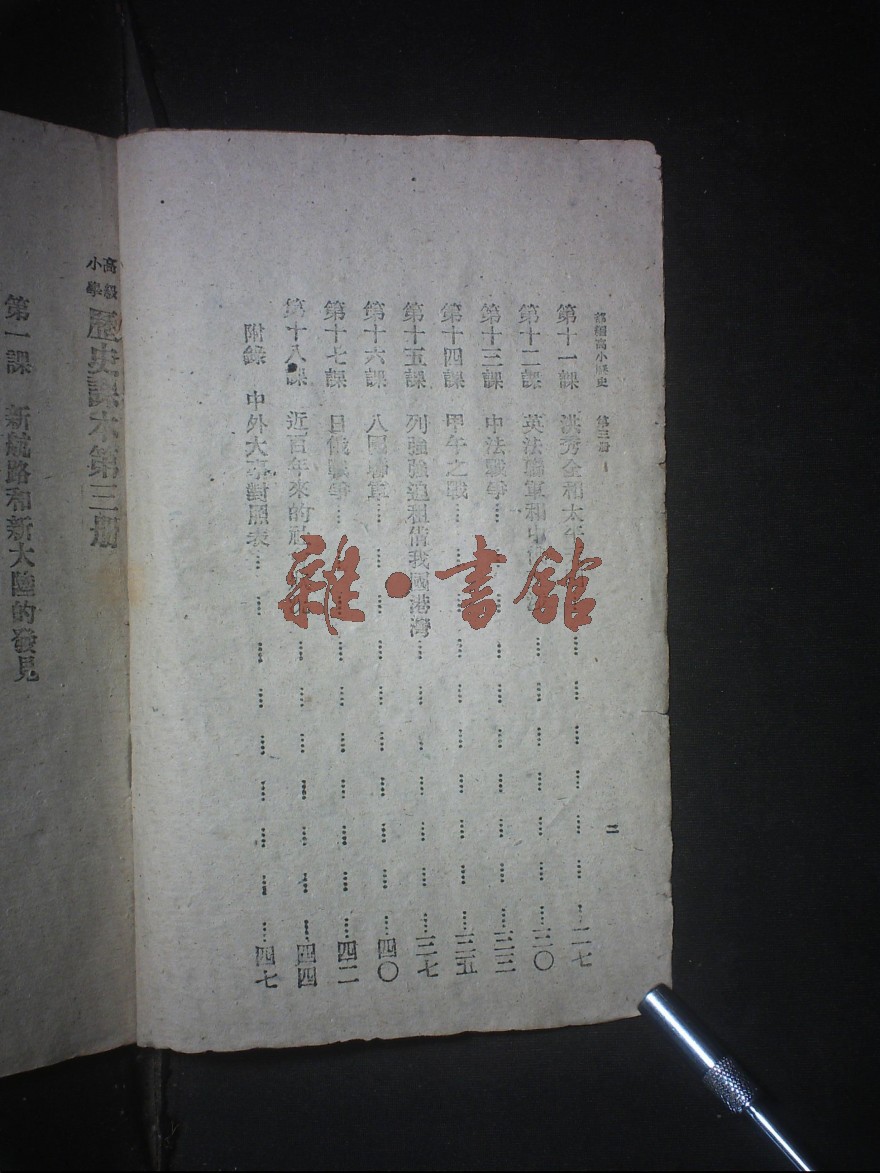 高小歷史 第三册
二
第十一課 洪秀全和太平 二七
第十二課 英法聯軍和中俄 三〇
第十三課 中法戰爭 三三
第十四課 甲午之戰 三五
第十五課 列強強迫租借我國港灣 三七
第十六課 八國聯軍 四〇
第十七課 日俄戰爭 四二
第十八課 近百年來的 四四
附錄 中外大事對照表 四七
高級小學 歷史課本第三册
第一課 新航路和新大陸的發見
雜·書館